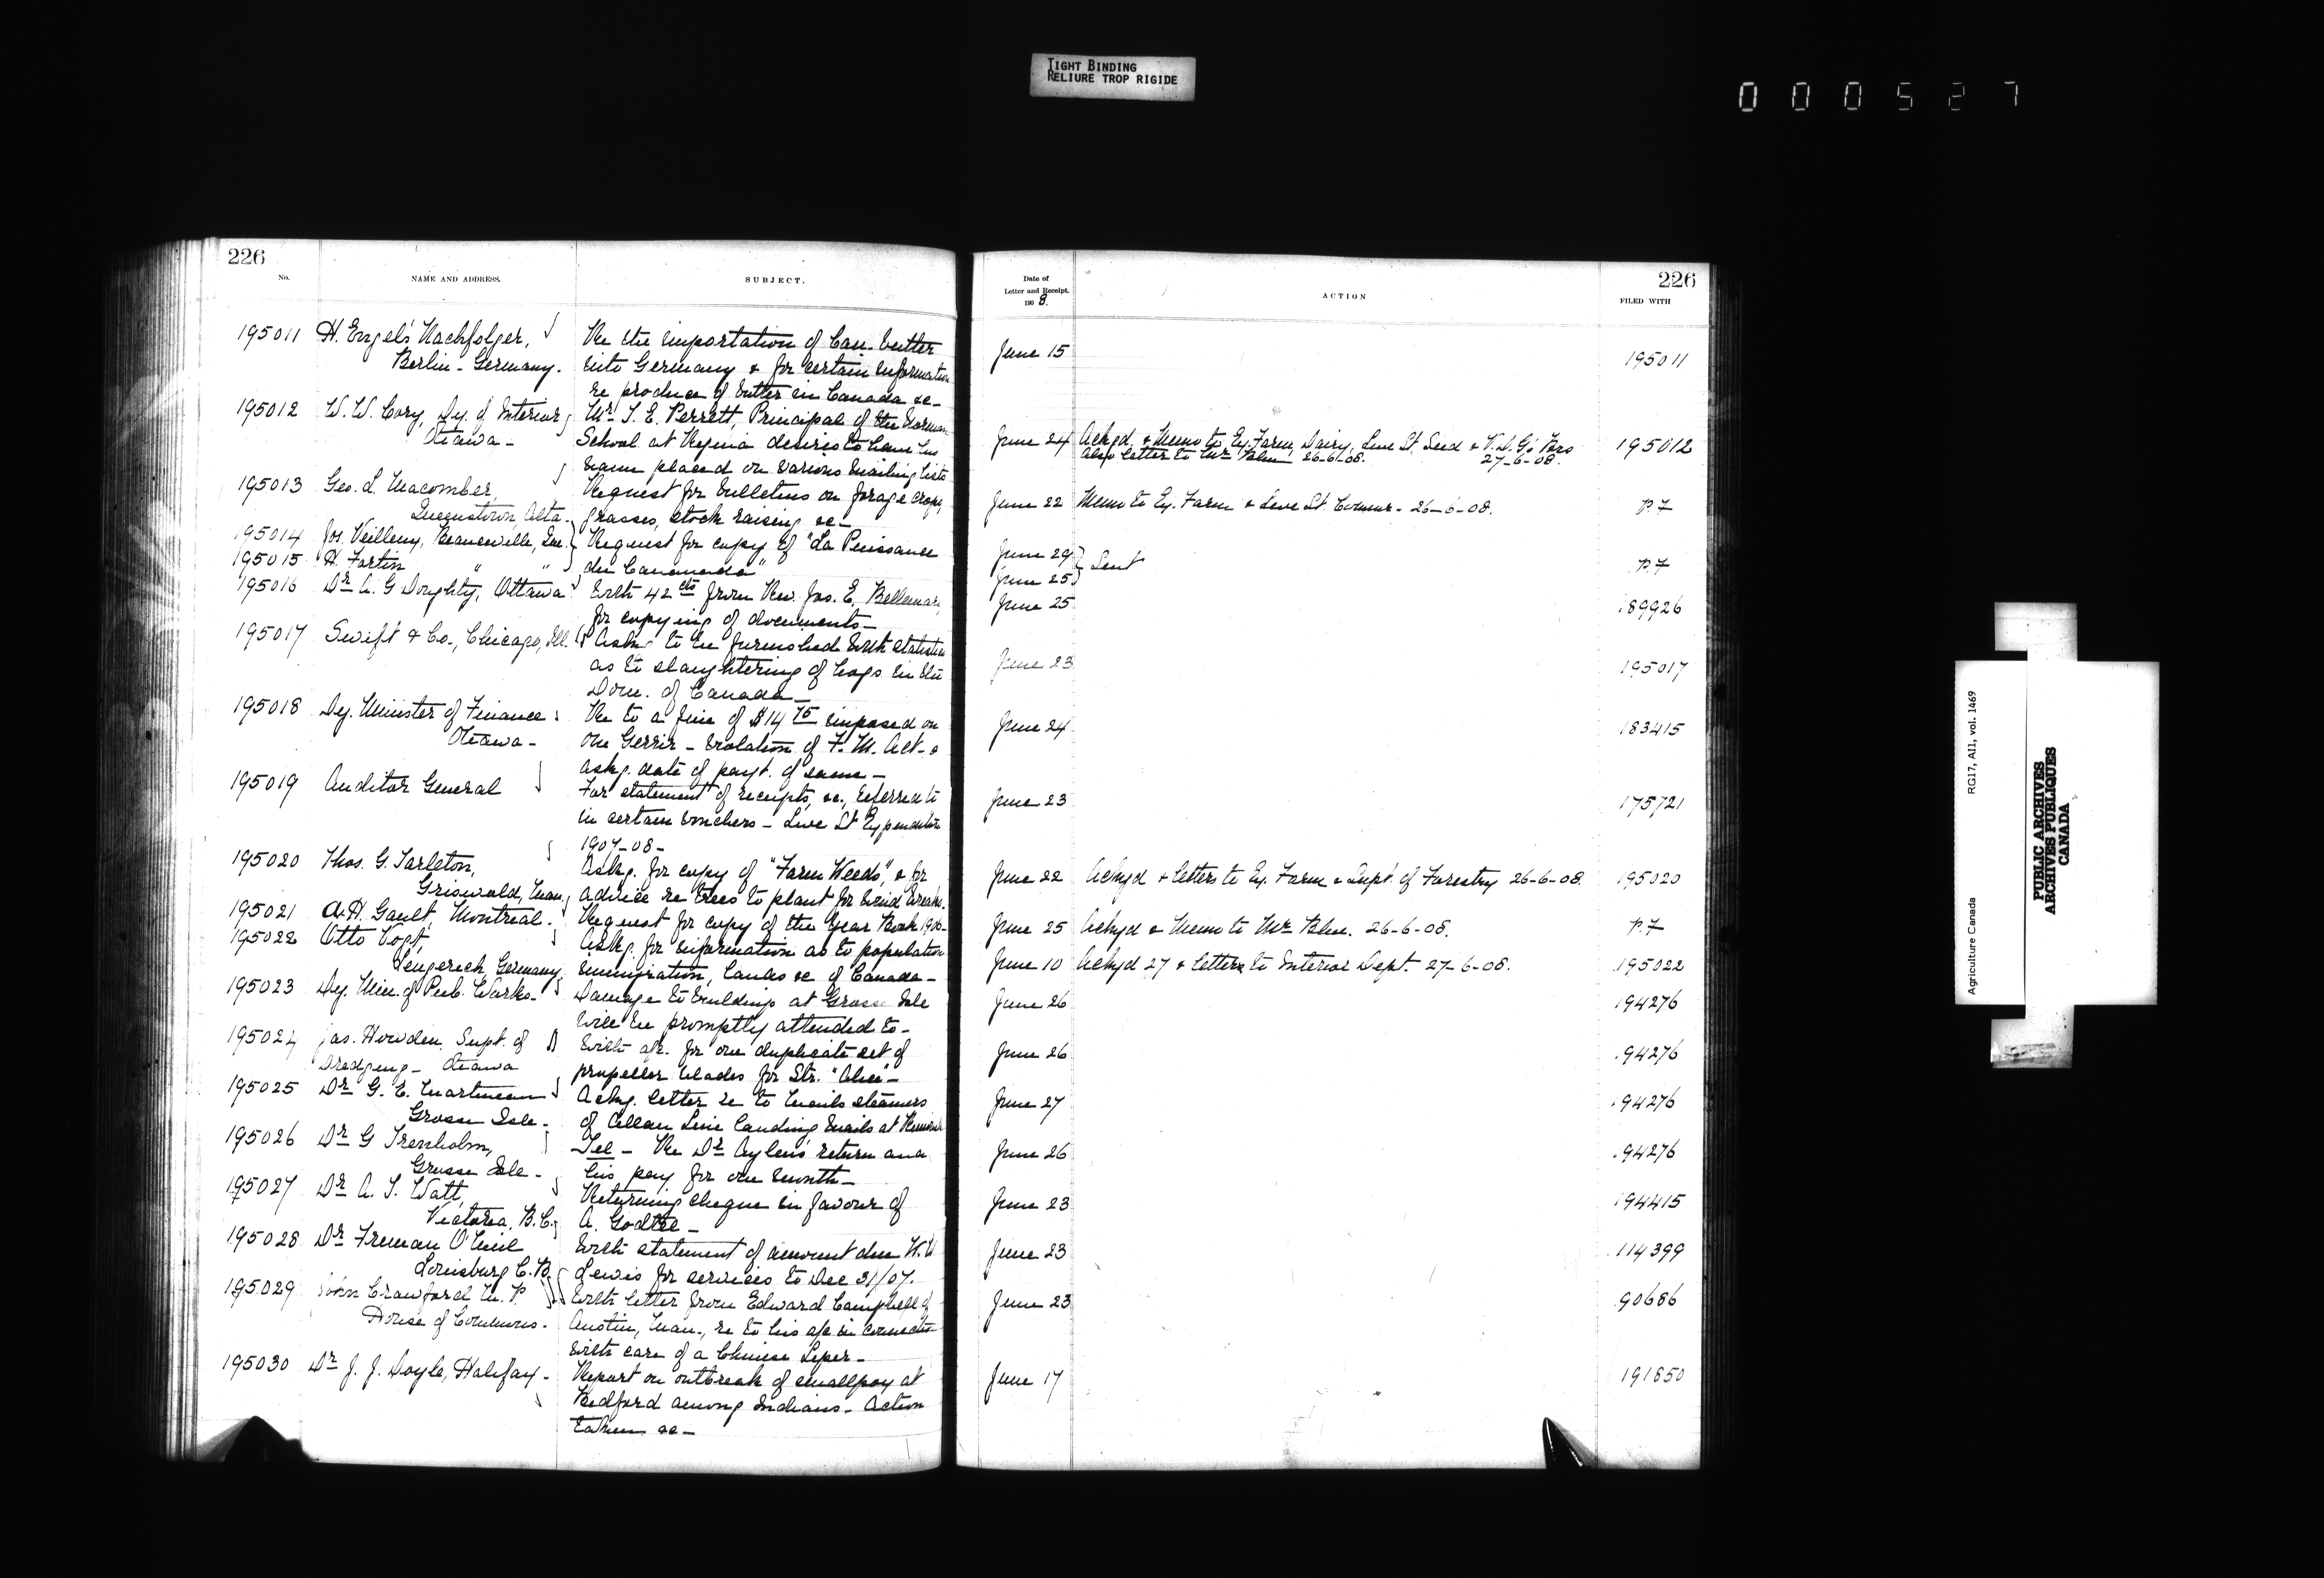 TIGHT BINDING
RELIURE TROP RIGIDE
000527
226
No.
NAME AND ADDRESS.
SUBJECT.
195011 H. Engel's Nachfolger,
Berlin - Germany.
Re the importation of Can. butter
into Germany & for certain information
re produce of butter in Canada &c -
195012 W. W. Cory, Dy. of Interior
Ottawa -
Mr. T. E. Perrett, Principal of the Normal
School at Regina desires to have his
name placed on various mailing lists
195013 Geo. L. Macomber,
Queenstown, Alta.
Request for bulletins on forage crops,
grasses, stock raising &c -
195014 Jos. Veilleux, Beauceville, Que.
195015 H. Fortin " "
Request for copy of "La Puissance
du Canada"
195016 Dr. A. G Doughty, Ottawa
With 42 cts from Rev. Jos. E. Bellemare,
for copying of documents -
195017 Swift & Co., Chicago, Ill.
Askg to be furnished with statistics
as to slaughtering of hogs in the
Dom. of Canada -
195018 Dy. Minister of Finance
Ottawa -
Re to a fine of $14 75 imposed on
one - violation of F. M. Act. &
askg. date of payt. of same -
195019 Auditor General
For statement of receipts, &c., referred to
in certain vouchers - Live St Expenditure
1907-08 -
195020 Thos. G. Tarleton,
Griswold, Man.
Askg. for copy of "Farm Weeds", & for
advice re trees to plant for wind breaks.
195021 A. H. Gault, Montreal -
Request for copy of the Year Book 1906 -
195022 Otto Vogt,
Lengerich, Germany
Askg. for information as to population
immigration, lands &c of Canada -
195023 Dy. Min. of Pub. Works -
Damage to buildings at Grosse Isle
will be promptly attended to -
195024 Jas. Howden, Supt. of
Dredging - Ottawa
With a/c. for one duplicate set of
propeller blades for Str. "Alice" -
195025 Dr. G. E. Martineau
Grosse Isle -
Ackg. letter re to mails steamers
of Allan Line landing mails at Rimouski
195026 Dr. G Trenholm,
Grosse Isle -
Tel - Re Dr. Aylen's return and
his pay for one month -
195027 Dr. A. T. Watt,
Victoria. B. C.
Returning cheque in favour of
A. -
195028 Dr. Freeman O'Neil
Louisburg C. B.
With statement of amount due W. W
Lewis for services to Dec 31/07.
195029 John Crawford M. P.
House of Commons -
With letter from Edward Campbell of
Austin, Man., re to his a/c in connection
with care of a Chinese Leper -
195030 Dr. J. J. Doyle, Halifax -
Report on outbreak of smallpox at
Bedford among Indians - Action
taken &c -
226
Date of
Letter and Receipt.
1908.
ACTION
FILED WITH
June 15 195011
June 24 Ackgd. & Memo to Ex. Farm, Dairy, Live St. Seed & V. D. G's Brs 195012
also letter to Mr. Blue 26-6-08. 27-6-08.
June 22 Memo to Ex. Farm & Live St. Commr. - 26-6-08. P.F
June 24 } Sent P.F
June 25
June 25 189926
June 23 195017
June 24 183415
June 23 175721
June 22 Ackgd & letters to Ex. Farm & Supt. of Forestry 26-6-08. 195020
June 25 Ackgd & Memo to Mr. Blue. 26-6-08. P.F
June 10 Ackgd 27 & letter to Interior Dept. 27-6-08. 195022
June 26 194276
June 26 194276
June 27 194276
June 26 194276
June 23 194415
June 23 114399
June 23 90686
June 17 191850
Agriculture Canada RG17, AII, vol. 1469
PUBLIC ARCHIVES
ARCHIVES PUBLIQUES
CANADA